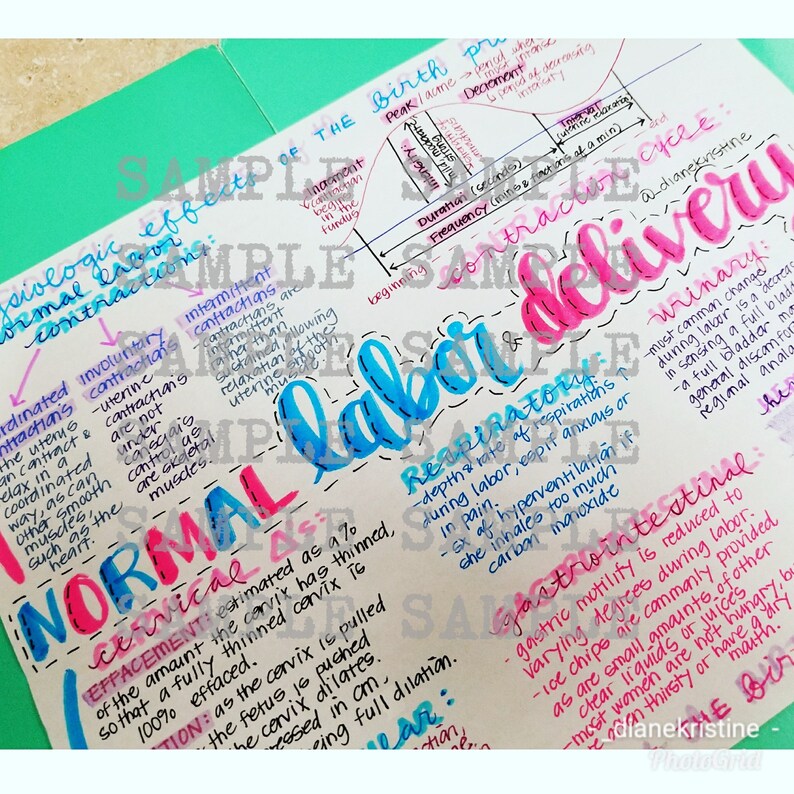 effects OF THE BIRTH
normal labor
contractions:
coordinated
contractions
the uterus
can contract &
relax in a
coordinated
way, as can
other smooth
muscles,
such as the
heart.
involuntary
contractions
uterine
contractions
are not
under
conscious
control as
are skeletal
muscles.
intermittent
contractions
contractions are
intermittent
rather than
sustained allowing
relaxation of the
uterine muscle
Increment
contraction
begins
in the
fundus
Peak/acme → period when
most intense
Decrement
↳ period of decreasing
intensity
Interval
(uterine relaxation)
end
Duration (seconds)
Frequency (mins & fractions of a min)
beginning
contraction cycle:
@_dianekristine
NORMAL labor & delivery
urinary:
-most common change
during labor is a decrease
in sensing a full bladder
-a full bladder
general discomfort
regional
RESPIRATORY:
-depth & rate of respirations ↑
during labor, esp if anxious or
in pain.
-s/s of hyperventilation if
she inhales too much
carbon monoxide
gastrointestinal
-gastric motility is reduced to
varying degrees during labor.
-ice chips are commonly provided
as are small amounts of other
clear liquids or juices
-most women are not hungry, but
are often thirsty or have a dry
mouth.
cervical Δs:
EFFACEMENT: estimated as a %
of the amount the cervix has thinned,
so that a fully thinned cervix is
100% effaced.
as the cervix is pulled
the fetus is pushed
the cervix dilates.
in cm,
being full dilation.
SAMPLE SAMPLE
SAMPLE SAMPLE
SAMPLE SAMPLE
SAMPLE SAMPLE
SAMPLE SAMPLE
SAMPLE SAMPLE
_dianekristine -
PhotoGrid